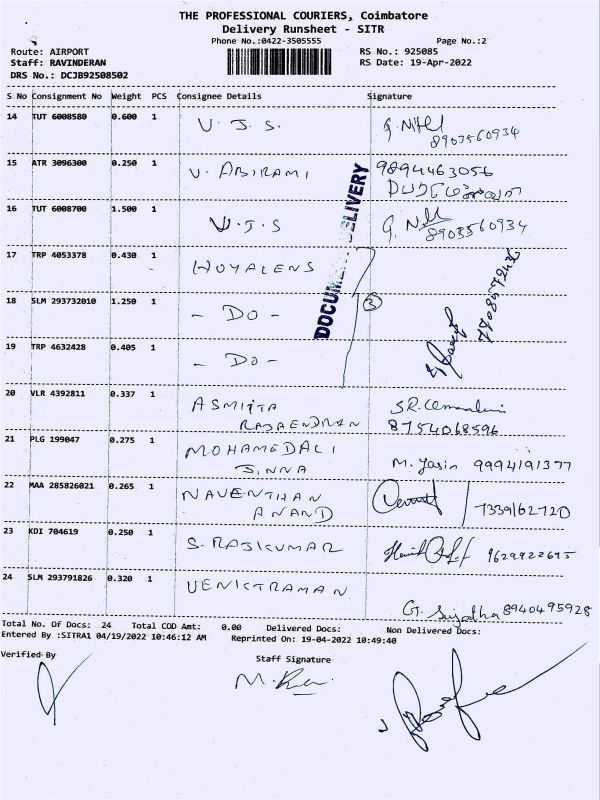 THE PROFESSIONAL COURIERS, Coimbatore
Delivery Runsheet - SITR
Phone No.:0422-3505555
Page No.:2
Route: AIRPORT
RS No.: 925085
Staff: RAVINDERAN
RS Date: 19-Apr-2022
DRS No.: DCJB92508502
S No Consignment No Weight PCS Consignee Details Signature
14 TUT 6008580 0.600 1 V. J. S. 8903560934
15 ATR 3096300 0.250 1 V. ABIRAMI 9894463056
16 TUT 6008700 1.500 1 V.J.S 8903560934
17 TRP 4053378 0.430 1 HOYALENS
18 SLM 293732010 1.250 1 - DO - 3
19 TRP 4632428 0.405 1 - DO -
DOCUMENT DELIVERY
20 VLR 4392811 0.337 1 ASMITTA
RAJAENDRAN 8754068596
21 PLG 199047 0.275 1 MOHAMEDALI
JINNA M. Jasin 9994191377
22 MAA 285826021 0.265 1 NAVENTHAN
ANAND 7339162720
23 KDI 704619 0.250 1 S. RAJKUMAR
24 SLM 293791826 0.320 1 VENKTRAMAN
G. Sujatha 8940495928
Total No. Of Docs: 24 Total COD Amt: 0.00 Delivered Docs: Non Delivered Docs:
Entered By :SITRA1 04/19/2022 10:46:12 AM Reprinted On: 19-04-2022 10:49:40
Verified By
Staff Signature